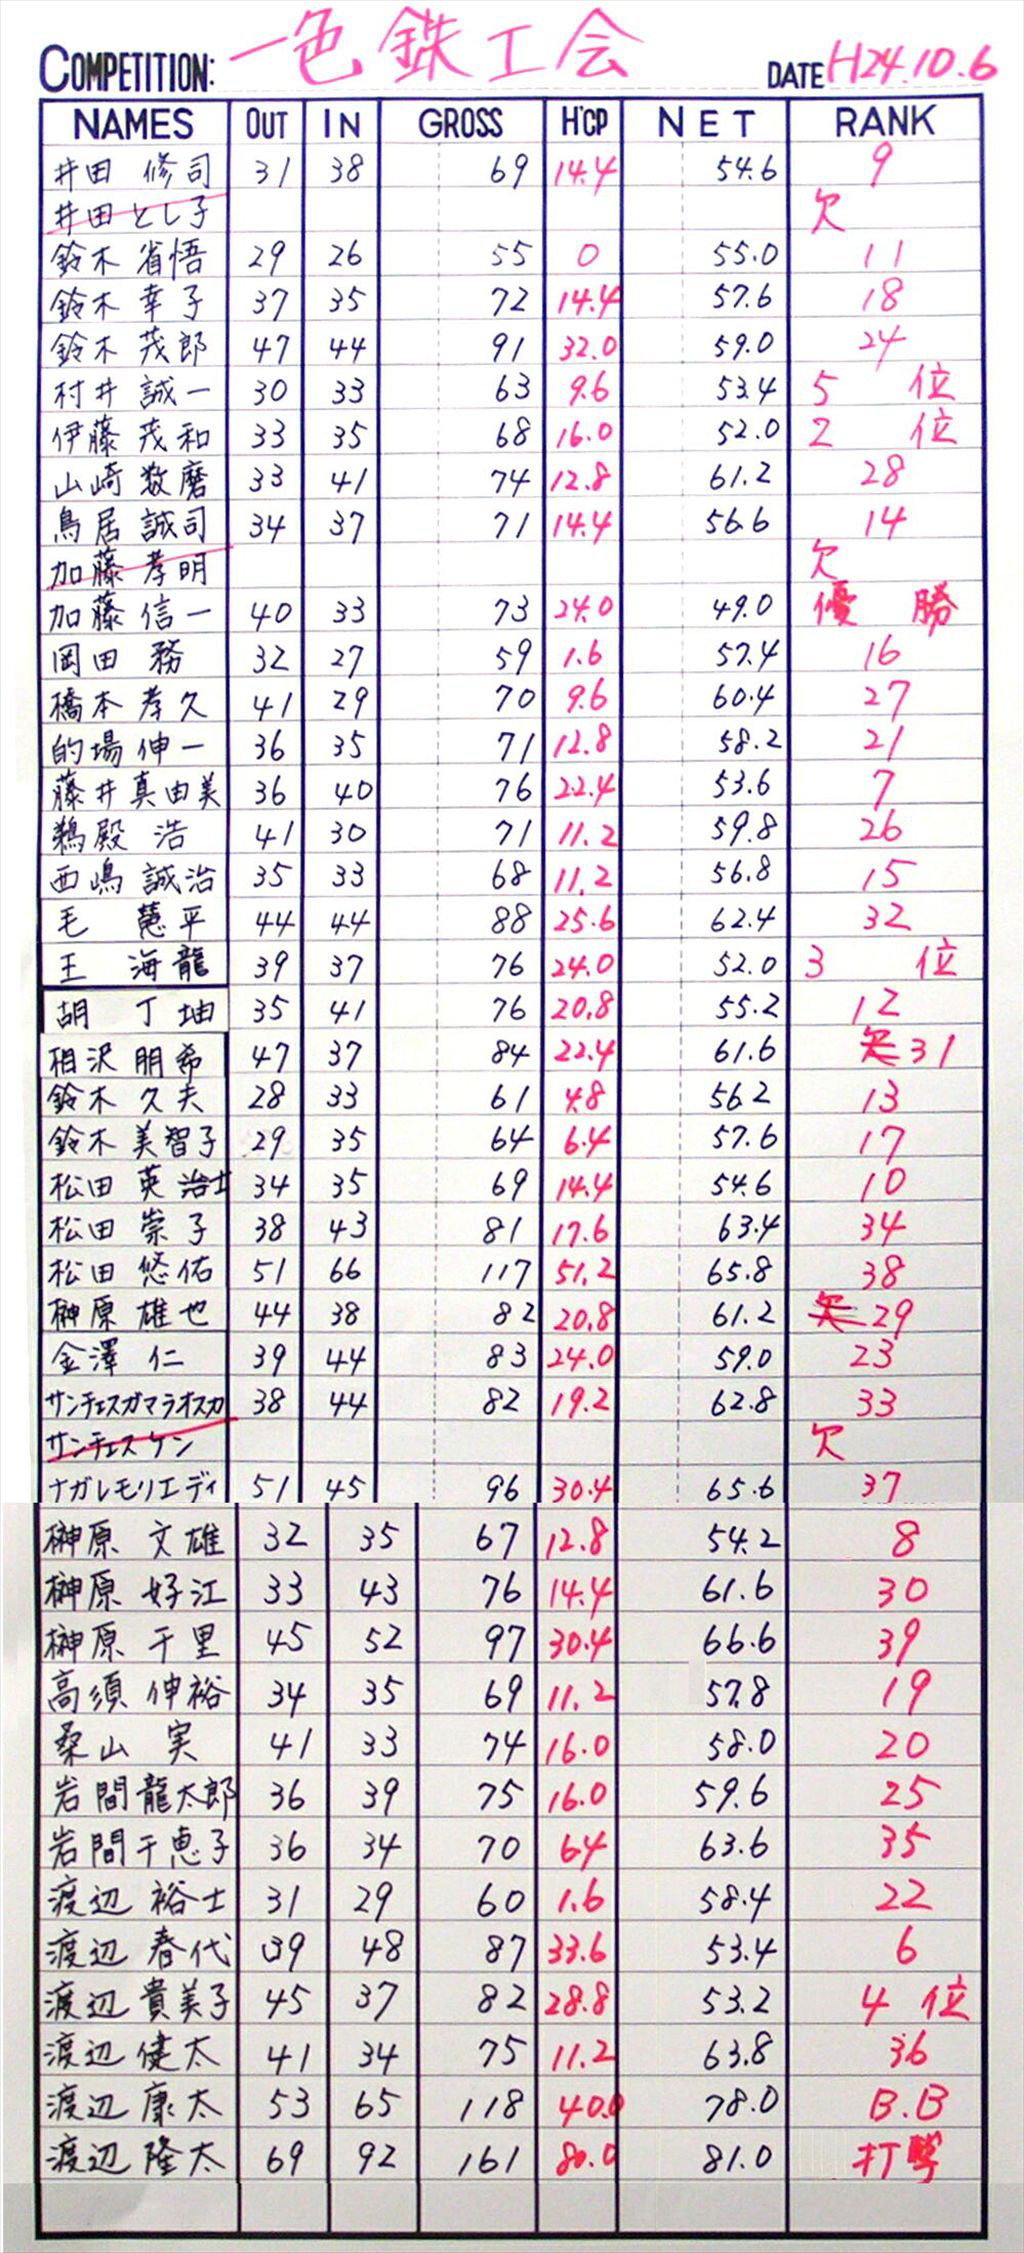 COMPETITION: 一色鉄工会 DATE H24.10.6
NAMES OUT IN GROSS H'CP NET RANK
井田 修司 31 38 69 14.4 54.6 9
井田とし子 欠
鈴木 省悟 29 26 55 0 55.0 11
鈴木 幸子 37 35 72 14.4 57.6 18
鈴木 茂郎 47 44 91 32.0 59.0 24
村井 誠一 30 33 63 9.6 53.4 5 位
伊藤 茂和 33 35 68 16.0 52.0 2 位
山崎 数磨 33 41 74 12.8 61.2 28
鳥居 誠司 34 37 71 14.4 56.6 14
加藤 孝明 欠
加藤 信一 40 33 73 24.0 49.0 優 勝
岡田 務 32 27 59 1.6 57.4 16
橋本 孝久 41 29 70 9.6 60.4 27
的場 伸一 36 35 71 12.8 58.2 21
藤井真由美 36 40 76 22.4 53.6 7
鵜殿 浩 41 30 71 11.2 59.8 26
西嶋 誠治 35 33 68 11.2 56.8 15
毛 慧平 44 44 88 25.6 62.4 32
王 海龍 39 37 76 24.0 52.0 3 位
胡 丁坤 35 41 76 20.8 55.2 12
相沢 朋希 47 37 84 22.4 61.6 欠 31
鈴木 久夫 28 33 61 4.8 56.2 13
鈴木 美智子 29 35 64 6.4 57.6 17
松田 英治 34 35 69 14.4 54.6 10
松田 崇子 38 43 81 17.6 63.4 34
松田 悠佑 51 66 117 51.2 65.8 38
榊原 雄也 44 38 82 20.8 61.2 欠 29
金澤 仁 39 44 83 24.0 59.0 23
サンチェスガマラオスカ 38 44 82 19.2 62.8 33
サンチェスケン 欠
ナガレモリエディ 51 45 96 30.4 65.6 37
榊原 文雄 32 35 67 12.8 54.2 8
榊原 好江 33 43 76 14.4 61.6 30
榊原 千里 45 52 97 30.4 66.6 39
高須 伸裕 34 35 69 11.2 57.8 19
桑山 実 41 33 74 16.0 58.0 20
岩間龍太郎 36 39 75 16.0 59.6 25
岩間千恵子 36 34 70 6.4 63.6 35
渡辺 裕士 31 29 60 1.6 58.4 22
渡辺 春代 39 48 87 33.6 53.4 6
渡辺 貴美子 45 37 82 28.8 53.2 4 位
渡辺 健太 41 34 75 11.2 63.8 36
渡辺 康太 53 65 118 40.0 78.0 B.B
渡辺 隆太 69 92 161 80.0 81.0 打撃